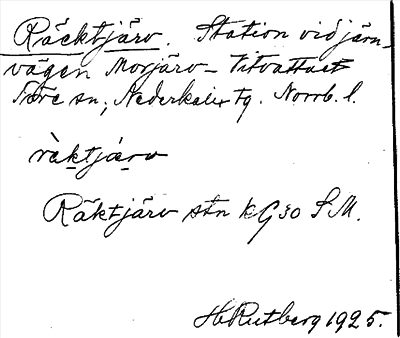 Räcktjärv. Station vid järn-
vägen Morjärv–
Töre sn, Nederkalix tg. Norrb. l.
ràktjárv
Räktjärv stn kG30 S M.
H. Rutberg 1925.